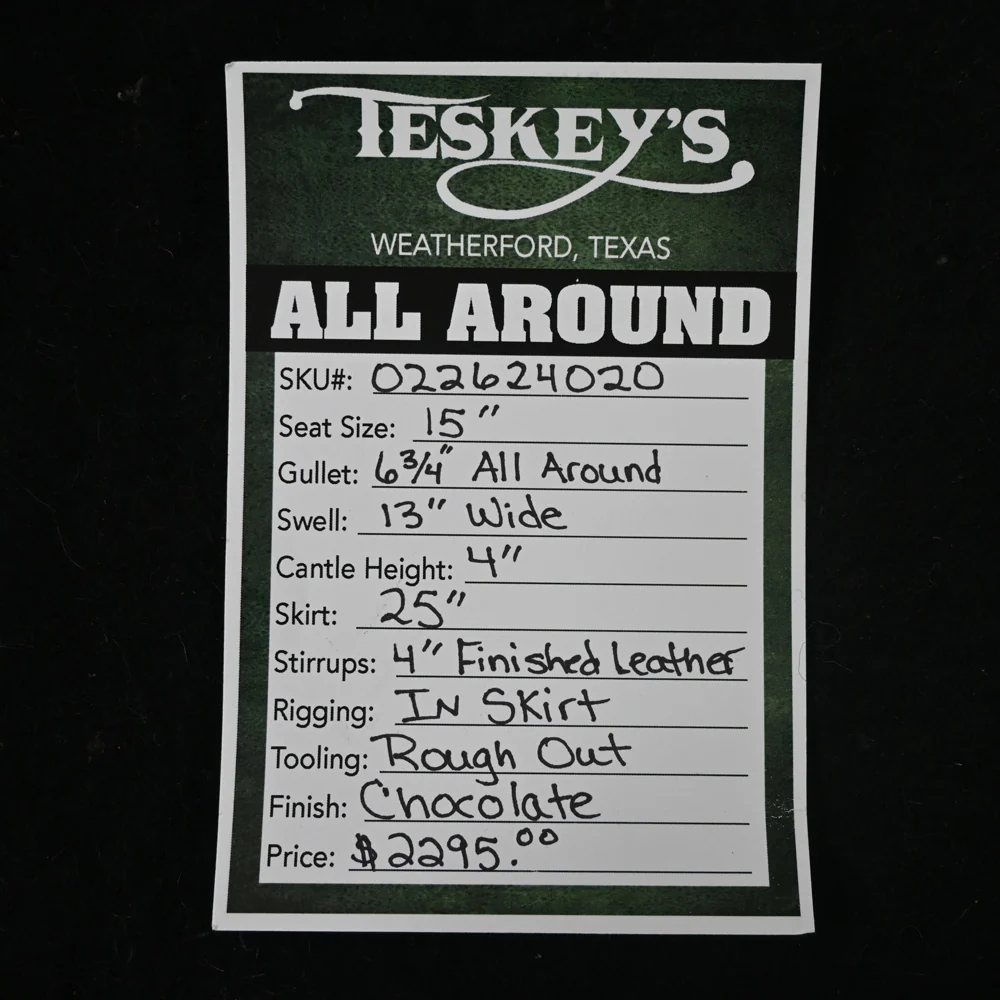 TESKEY'S
WEATHERFORD, TEXAS
ALL AROUND
SKU#: 022624020
Seat Size: 15"
Gullet: 6 3/4" All Around
Swell: 13" Wide
Cantle Height: 4"
Skirt: 25"
Stirrups: 4" Finished Leather
Rigging: IN SKirt
Tooling: Rough Out
Finish: Chocolate
Price: $2295.00